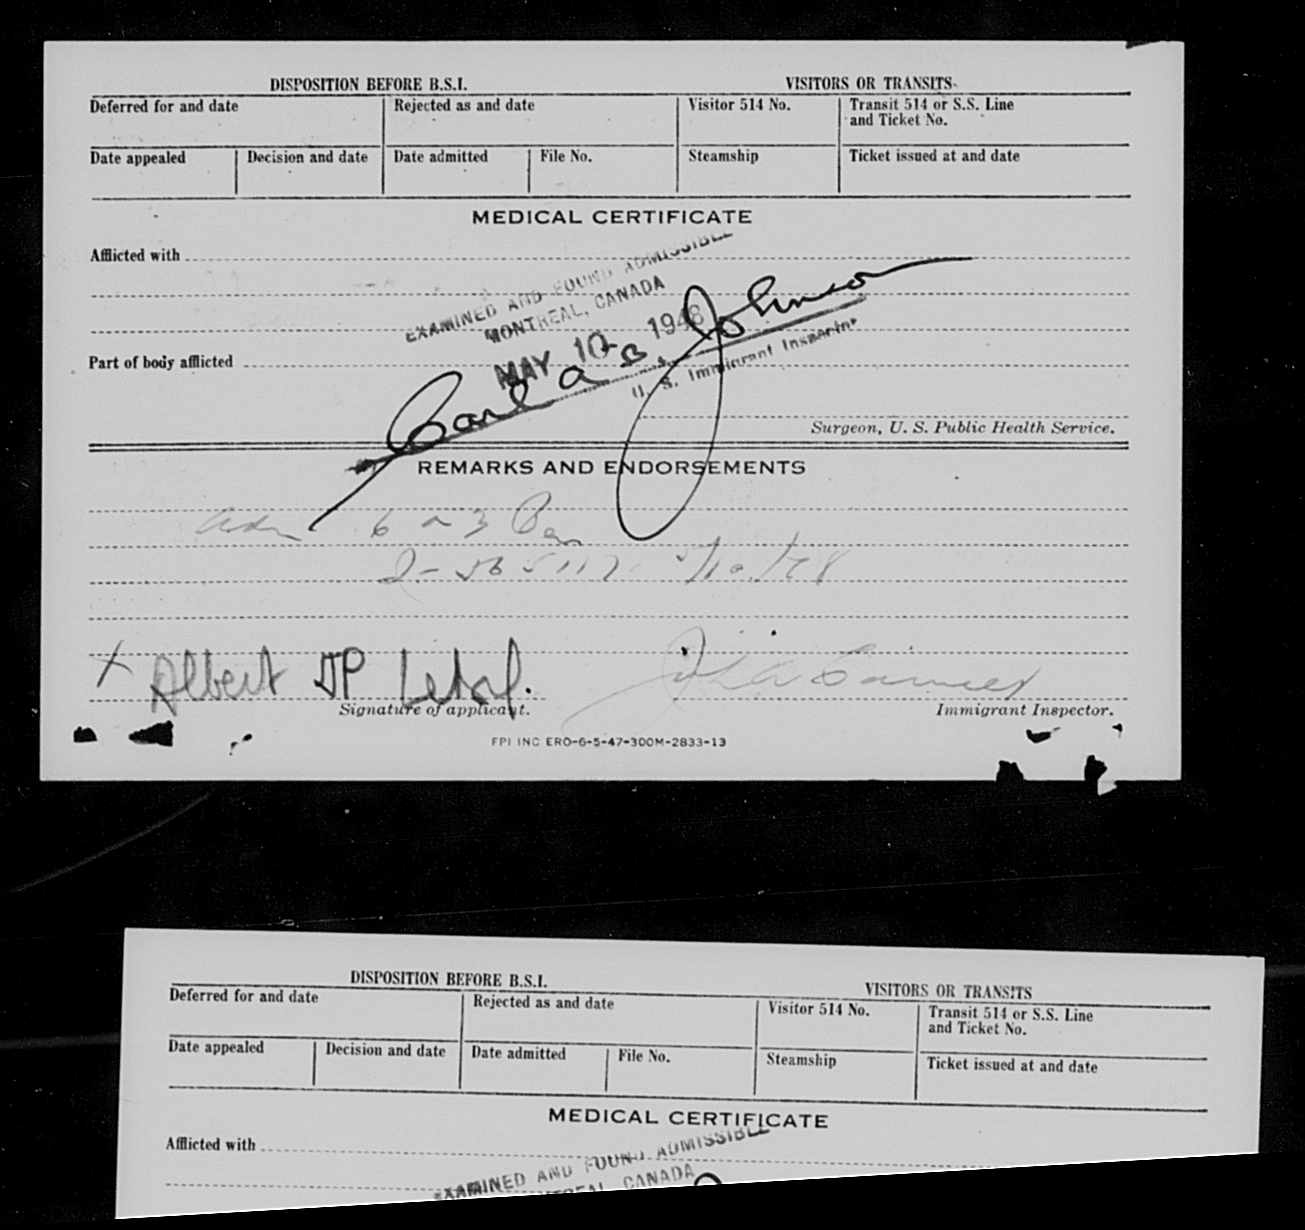 DISPOSITION BEFORE B.S.I. VISITORS OR TRANSITS
Deferred for and date Rejected as and date Visitor 514 No. Transit 514 or S.S. Line
and Ticket No.
Date appealed Decision and date Date admitted File No. Steamship Ticket issued at and date
MEDICAL CERTIFICATE
Afflicted with
EXAMINED AND FOUND ADMISSIBLE
MONTREAL, CANADA
MAY 10 1948
Part of body afflicted
Johnson
U. S. Immigrant Inspector
Surgeon, U. S. Public Health Service.
REMARKS AND ENDORSEMENTS
6 3
X Albert JP
Signature of applicant. Immigrant Inspector.
FPI INC ERO-6-5-47-300M-2833-13
DISPOSITION BEFORE B.S.I. VISITORS OR TRANSITS
Deferred for and date Rejected as and date Visitor 514 No. Transit 514 or S.S. Line
and Ticket No.
Date appealed Decision and date Date admitted File No. Steamship Ticket issued at and date
MEDICAL CERTIFICATE
Afflicted with
EXAMINED AND FOUND ADMISSIBLE
CANADA